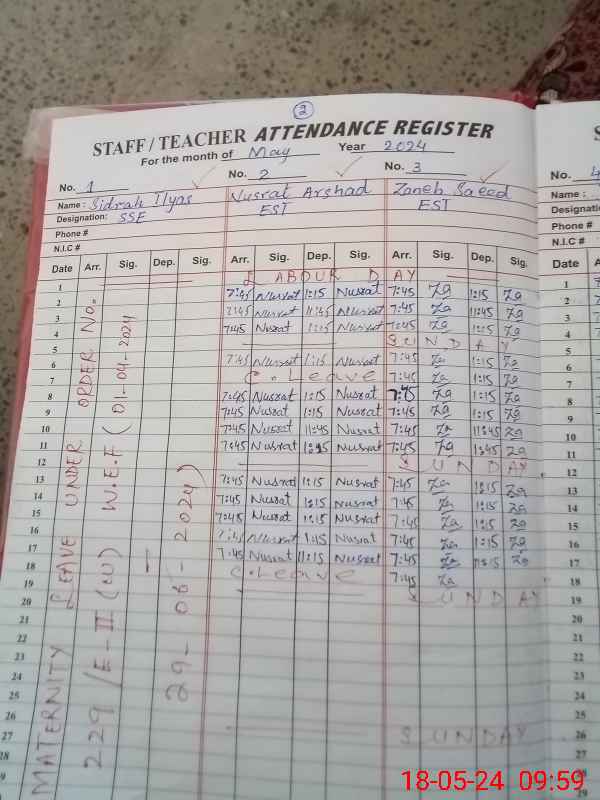 2
STAFF / TEACHER ATTENDANCE REGISTER
For the month of May Year 2024
No. 1 No. 2 No. 3 No. 4
Name : Sidrah Ilyas Nusrat Arshad Zaneb Saeed Name :
Designation: SSE EST EST Designation
Phone # Phone #
N.I.C # N.I.C #
Date Arr. Sig. Dep. Sig. Arr. Sig. Dep. Sig. Arr. Sig. Dep. Sig. Date A
1 LABOUR DAY 1
2 7:45 Nusrat 1:15 Nusrat 7:45 Za 1:15 Za 2
3 7:45 Nusrat 11:45 Nusrat 7:45 Za 11:45 Za 3
4 7:45 Nusrat 1:15 Nusrat 7:45 Za 1:15 Za 4
5 SUNDAY 5
6 7:45 Nusrat 1:15 Nusrat 7:45 Za 1:15 Za 6
7 C.Leave 7:45 Za 1:15 Za 7
8 7:45 Nusrat 1:15 Nusrat 7:45 Za 1:15 Za 8
9 7:45 Nusrat 1:15 Nusrat 7:45 Za 1:15 Za 9
10 7:45 Nusrat 11:45 Nusrat 7:45 Za 11:45 Za 10
11 7:45 Nusrat Nusrat 7:45 Za Za 11
12 SUNDAY 12
13 7:45 Nusrat 1:15 Nusrat 7:45 Za 1:15 Za 13
14 7:45 Nusrat 1:15 Nusrat 7:45 Za 1:15 Za 14
15 7:45 Nusrat 1:15 Nusrat 7:45 Za 1:15 Za 15
16 7:45 Nusrat Nusrat 7:45 Za 1:15 Za 16
17 7:45 Nusrat Nusrat 7:45 Za Za 17
18 C.Leave 7:45 Za 18
19 SUNDAY 19
20 20
21 21
22 22
23 23
24 24
25 25
26 SUNDAY 26
27 27
28 28
29
MATERNITY LEAVE UNDER ORDER No.
229 /E-II (W) W.E.F (01-04-2024
2024)
18-05-24 09:59